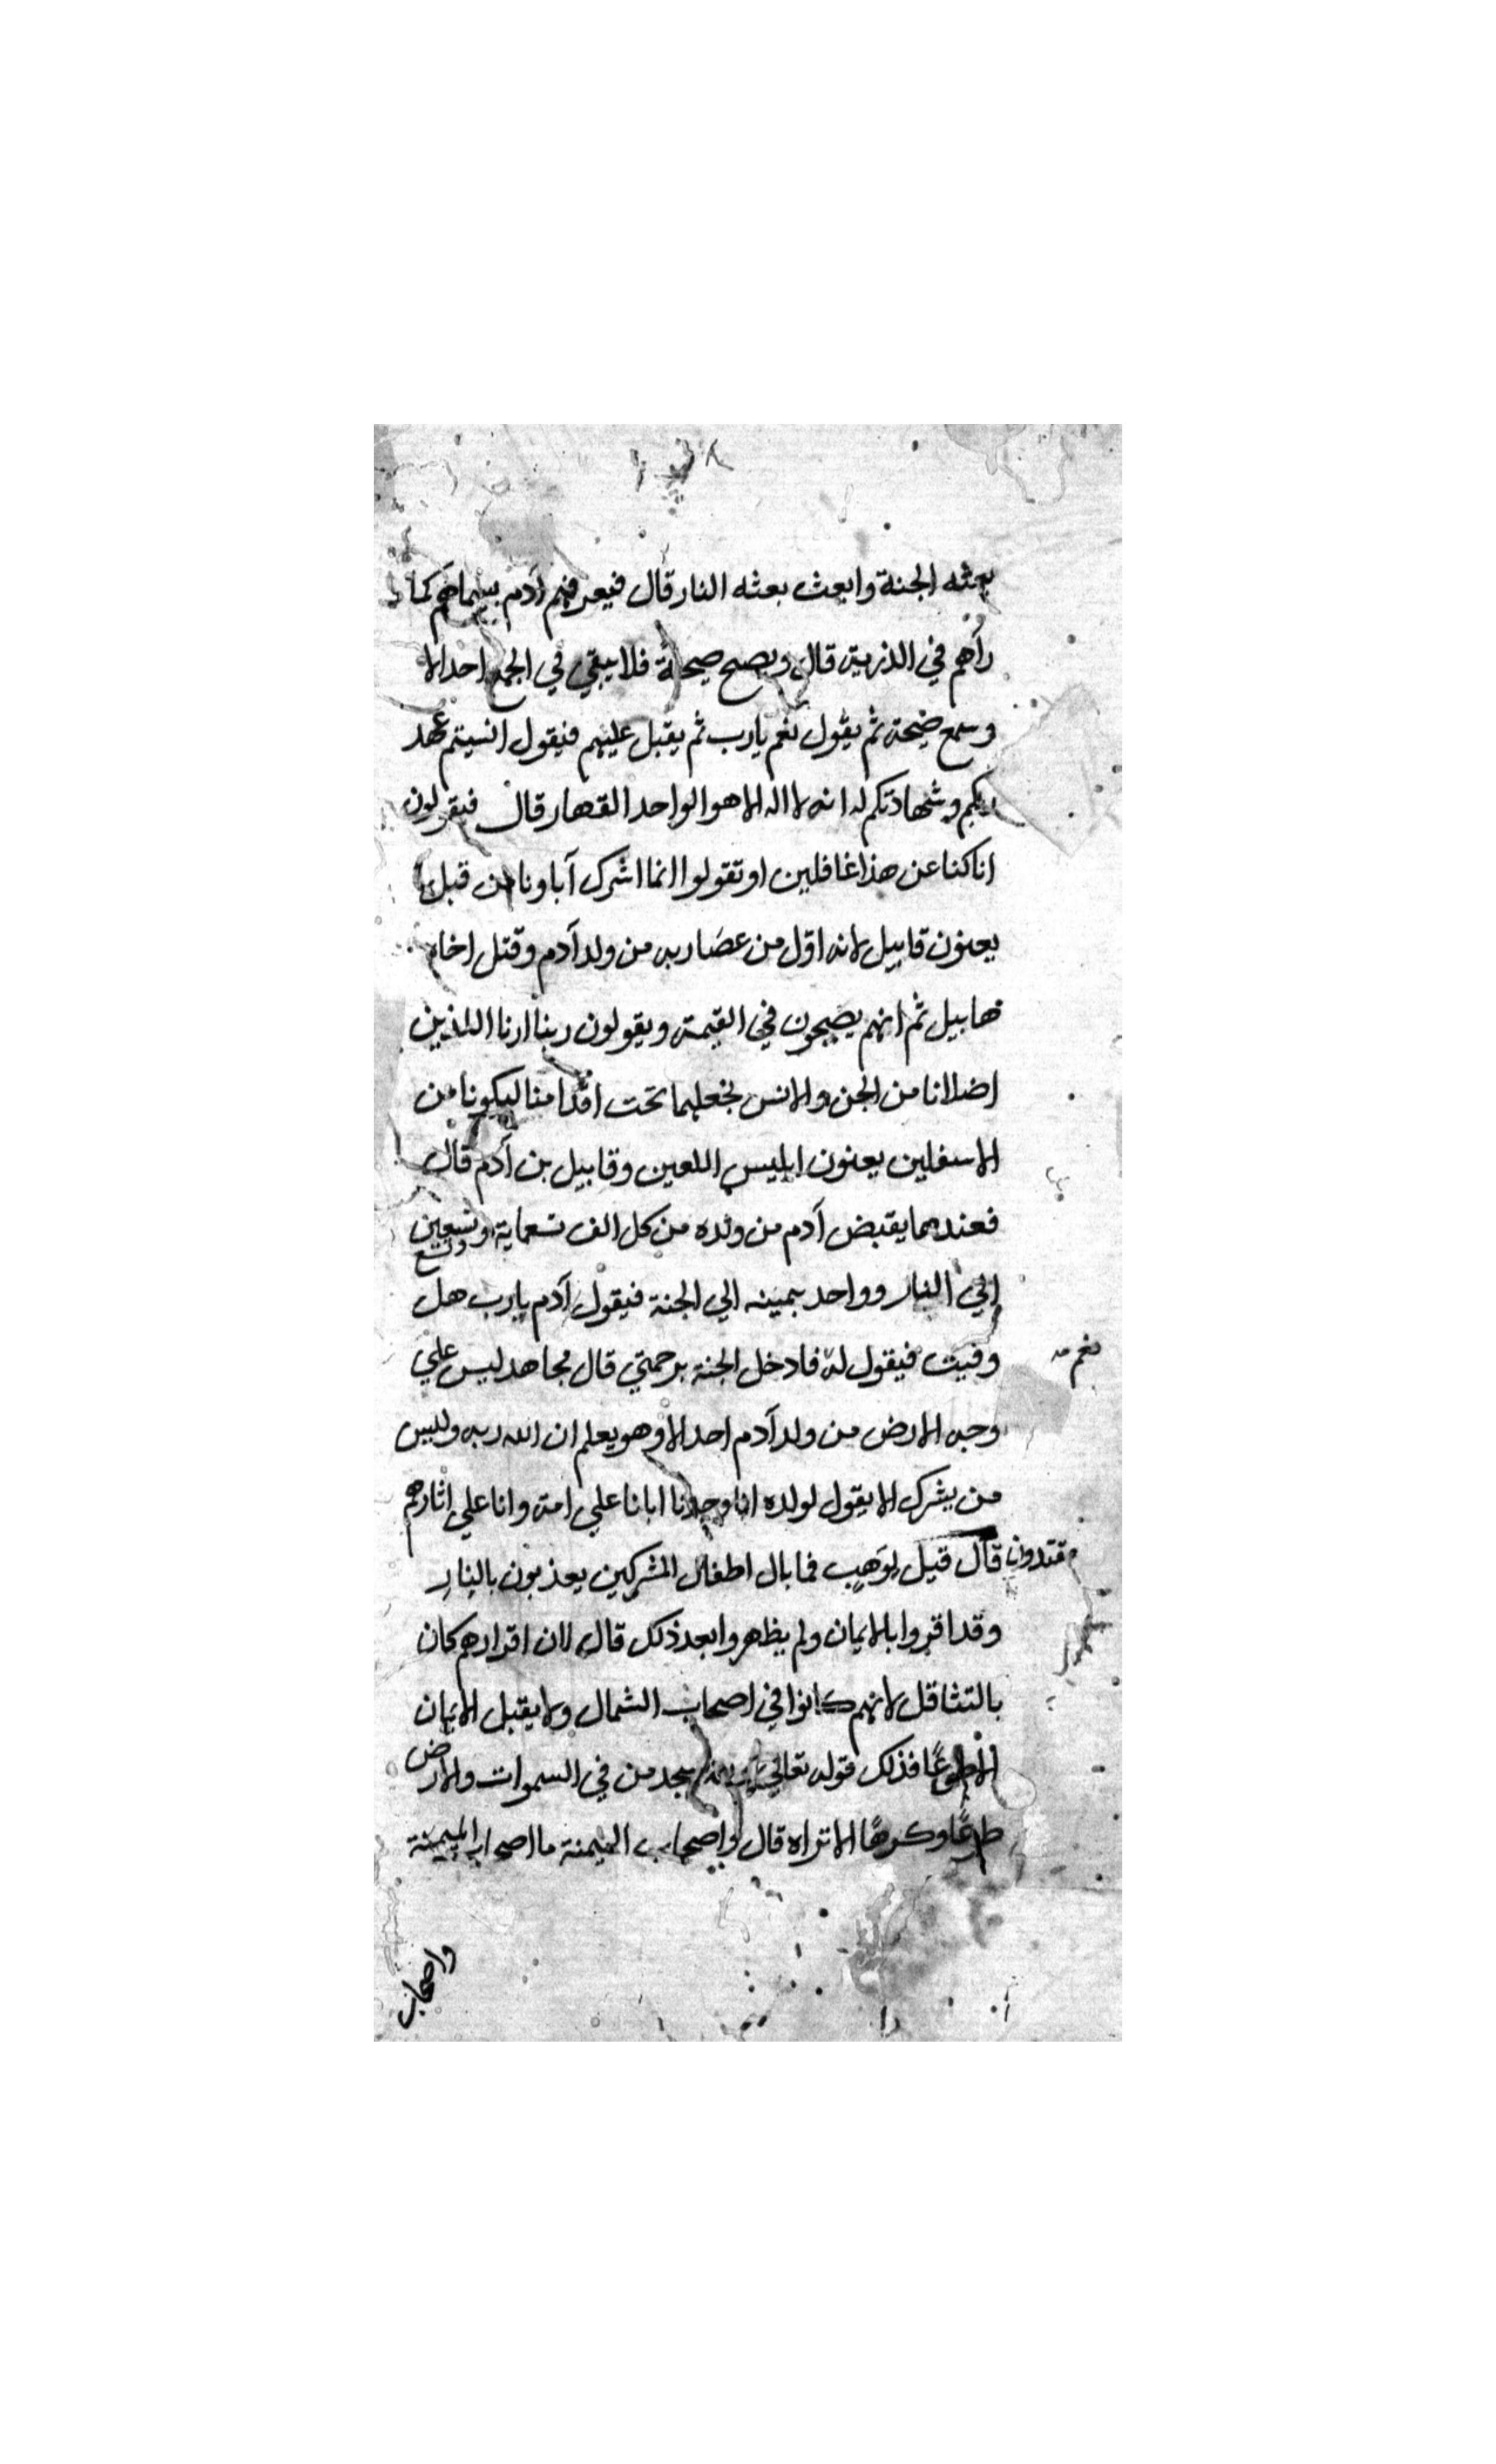 بعثه الجنة وابعث بعثه النار قال فيعرفهم آدم بسيماهم كما
رآهم في الذرية قال ويصيح صيحة فلا يبقي في الجمع احد الا
وسمع ضيحته ثم يقول نعم يارب ثم يقبل عليهم فيقول انسيتم عهد
ربكم وشهادتكم له انه لا اله الا هو الواحد القهار قال فيقولون
انا كنا عن هذا غافلين او تقولوا انما اشرك آباونا من قبل
يعنون قابيل لانه اوّل من عصَا ربه من ولد آدم وقتل اخاه
هابيل ثم انهم يصيحون في القيمة ويقولون ربنا ارنا اللذين
اضلانا من الجن والانس نجعلهما تحت اقدامنا ليكونا من
الاسفلين يعنون ابليس اللعين وقابيل بن آدم قال
فعندهما يقبض آدم من ولده من كل الف تسعماية وتسعين
وتسع
الي النار وواحد بيمينه الي الجنة فيقول آدم يارب هل
وفيت فيقول له فادخل الجنة برحمتي قال مجاهد ليس علي
نعم
وجه الارض من ولد آدم احد الا وهو يعلم ان الله ربه وليس
من يشرك الا يقول لولده انا وجدنا ابانا علي امة وانا علي اثارهم
مقتدون قال قيل لوَهبٍ فما بال اطفال المشركين يعذبون بالنار
وقد اقروا بالايمان ولم يظهروا بعد ذلك قال لان اقرارهم كان
بالتثاقل لانهم كانوا في اصحاب الشمال ولا يقبل الايمان
الا طوعًا فذلك قوله تعالي يسجد من في السموات والارض
طوعًا وكرهًا الا تراه قال واصحاب الميمنة ما اصحاب الميمنة
واصحاب